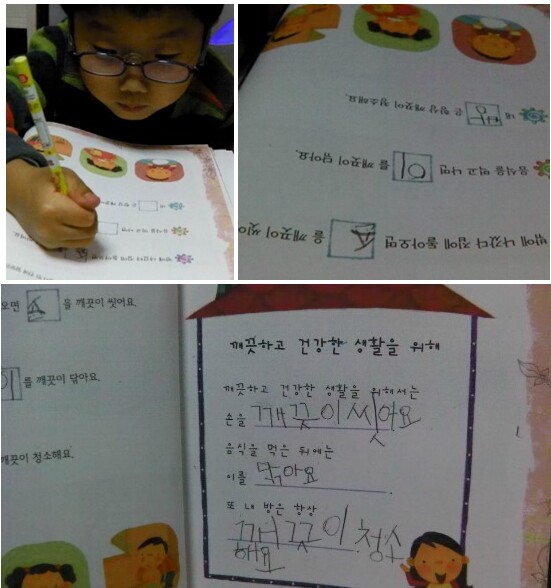 내 방 은 항상 깨끗이 청소해요.
음식을 먹고 나면 이 를 깨끗이 닦아요.
밖에 나갔다 집에 돌아오면 손 을 깨끗이
오면 손 을 깨끗이 씻어요.
이 를 깨끗이 닦아요.
깨끗이 청소해요.
깨끗하고 건강한 생활을 위해
깨끗하고 건강한 생활을 위해서는
손을 깨끗이 씻아요
음식을 먹은 뒤에는
이를 닦아요.
또 내 방은 항상
깨끗이 청소
해요.